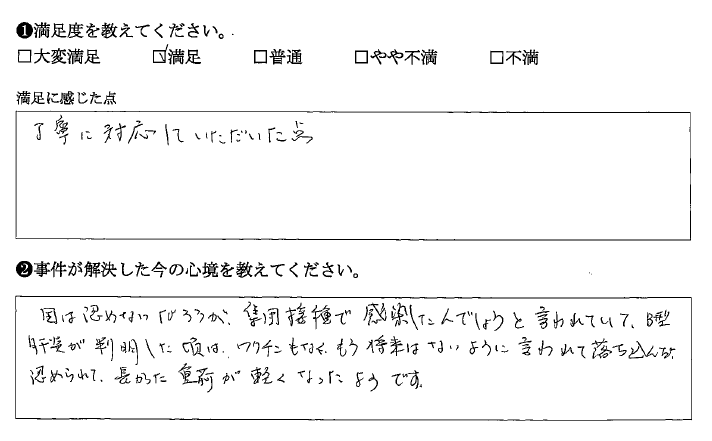 ❶満足度を教えてください。
□大変満足 ☑満足 □普通 □やや不満 □不満
満足に感じた点
丁寧に対応していただいた点
❷事件が解決した今の心境を教えてください。
国は認めないだろうが、集団接種で感染したんでしょうと言われていて、B型
肝炎が判明した頃は、ワクチンもなく、もう将来はないように言われて落ち込んだが
認められて、長かった重荷が軽くなったようです。